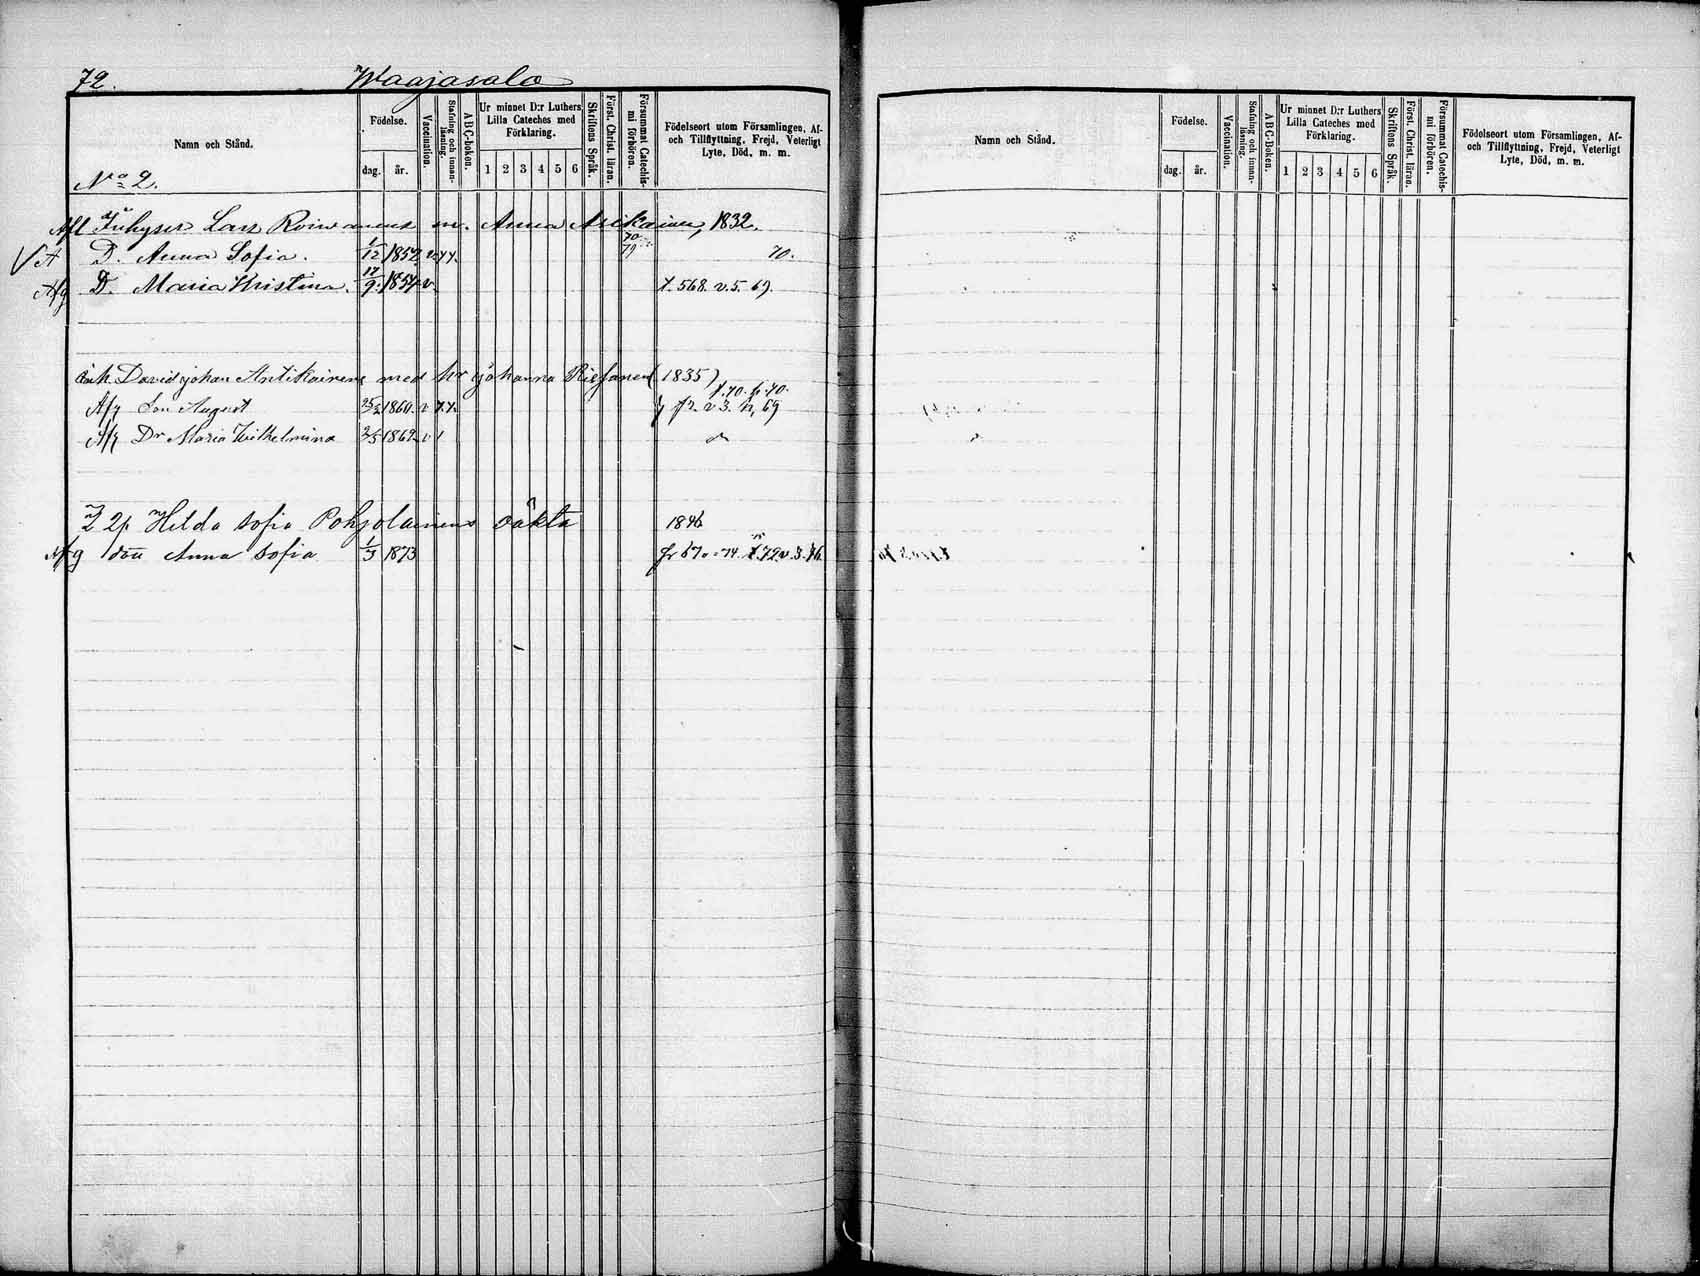 72. Waajasalo
Namn och Stånd.
Födelse.
dag. år.
Vaccination.
Stafning och innan-läsning.
ABC-boken.
Ur minnet D:r Luthers Lilla Cateches med Förklaring.
1 2 3 4 5 6
Skriftens Språk.
Först. Christ. läran.
Försummat Catechis-mi förhören.
Födelseort utom Församlingen, Af- och Tillflyttning, Frejd, Veterligt Lyte, Död, m. m.
No 2.
Lars Roiwanens m. Anna 1832.
A D. Anna Sofia. 1/12 1852 v 70/79 70.
Afg D. Maria Kristina. 17/9 1854 v. t. 568. v. 5. 69.
David Johan Antikainens med hr Johanna (1835)
t. 70. fr. 70.
Afg Son August 1860 v v 3. 69
Afg Dr Maria Wilhelmina 2/5 1862 v
Hilda Sofia Pohjolainens oäkta 1846
Afg dott Anna Sofia 1/3 1873 fr 570 74. t. 72 v. 3. 76.
Namn och Stånd.
Födelse.
dag. år.
Vaccination.
Stafning och innan-läsning.
ABC-Boken.
Ur minnet D:r Luthers Lilla Cateches med Förklaring.
1 2 3 4 5 6
Skriftens Språk.
Först. Christ. läran.
Försummat Catechis-mi förhören.
Födelseort utom Församlingen, Af- och Tillflyttning, Frejd, Veterligt Lyte, Död, m. m.